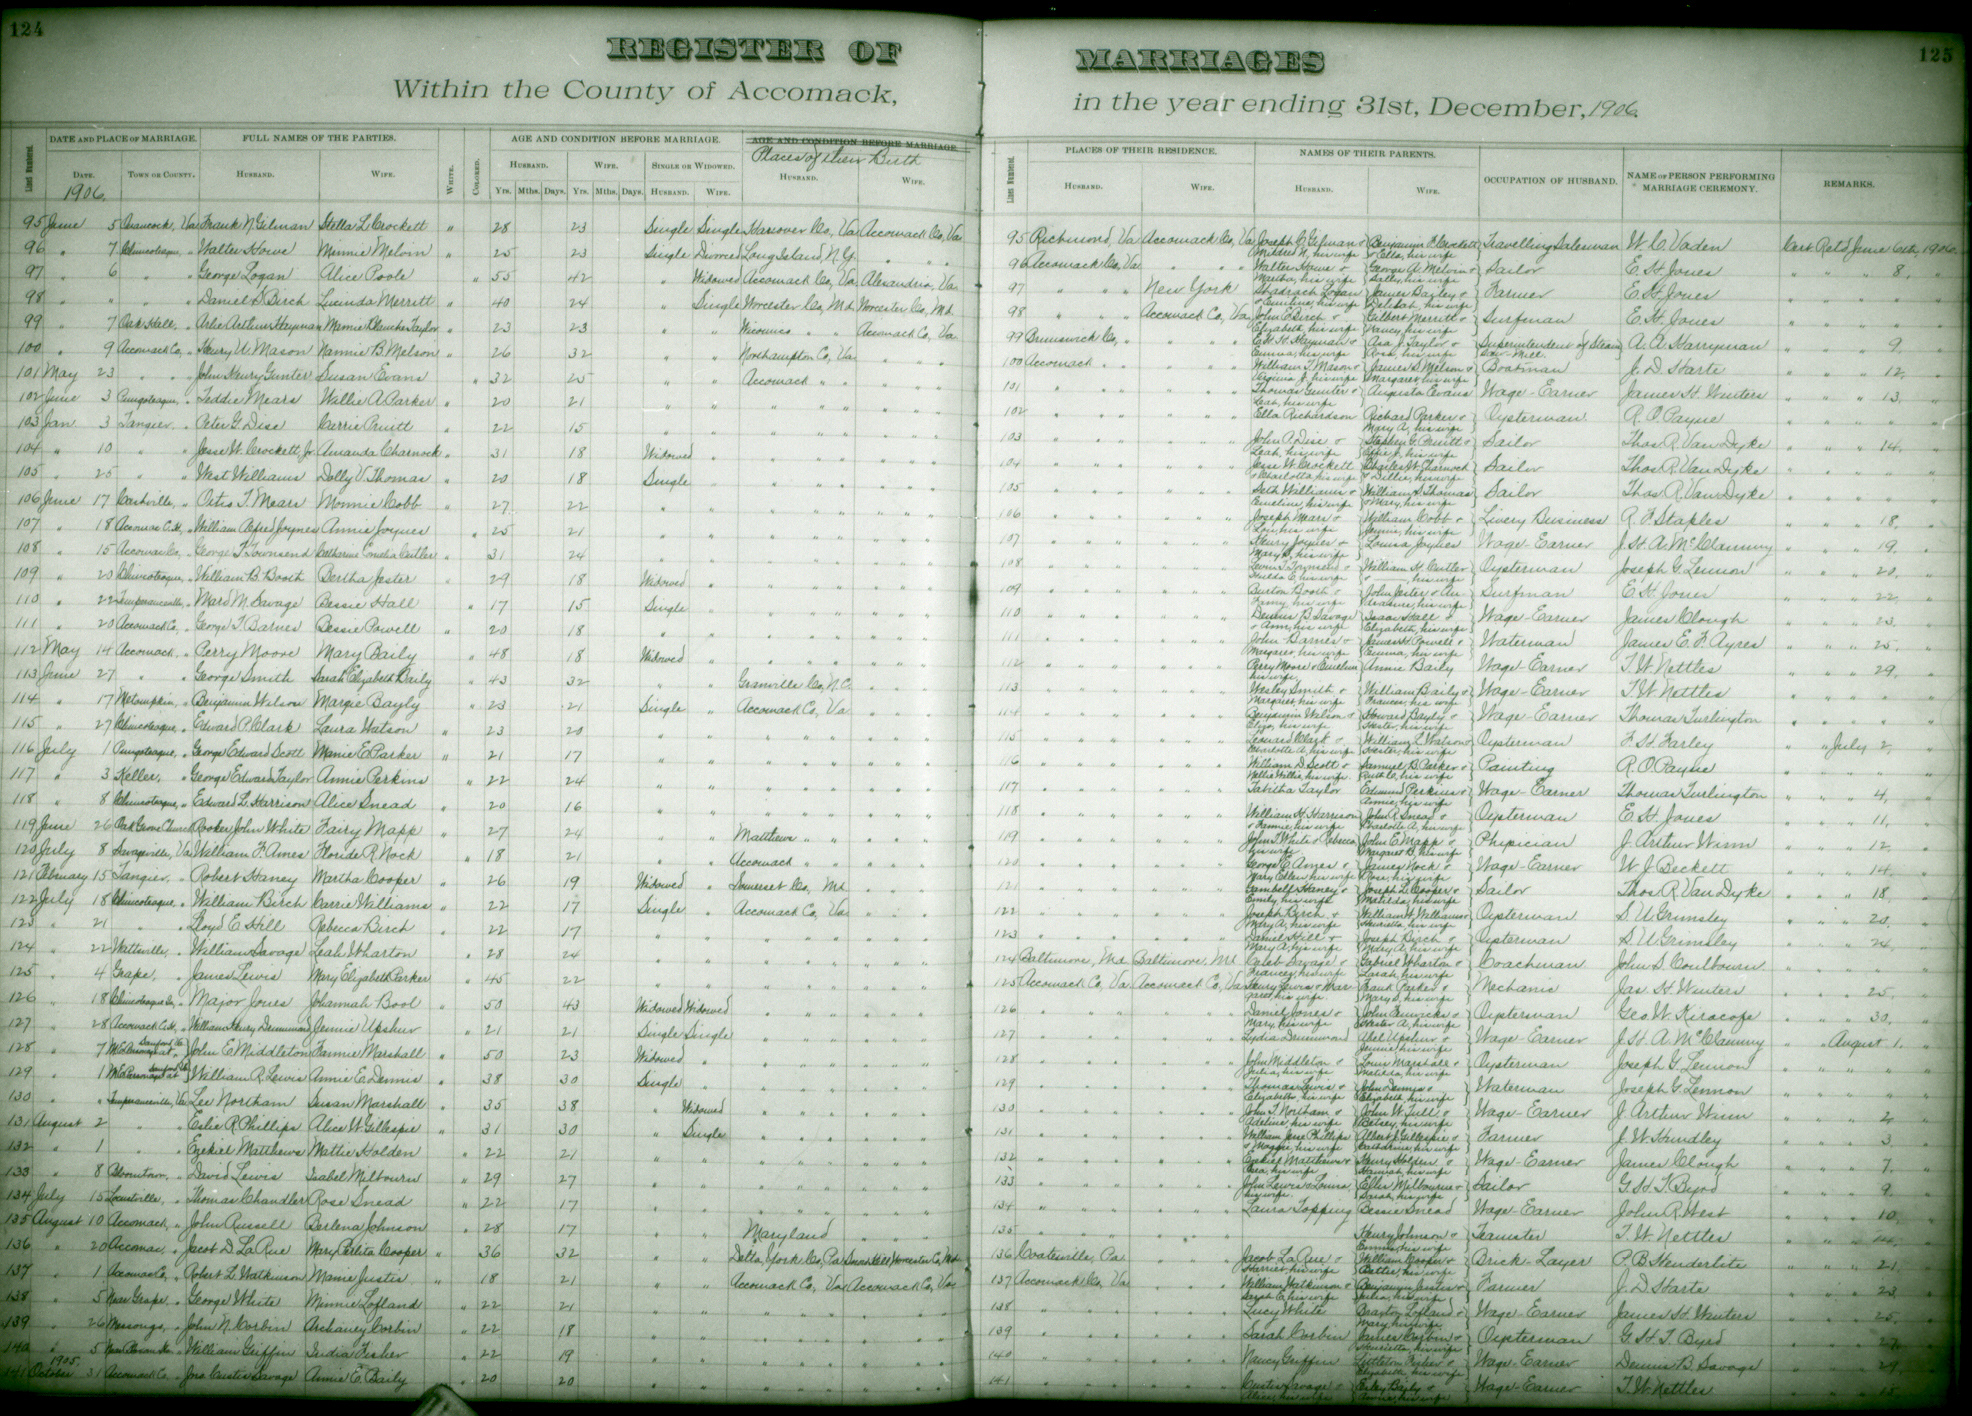 124
REGISTER OF MARRIAGES
125
Within the County of Accomack, in the year ending 31st, December, 1906.
Lines Numbered. DATE AND PLACE OF MARRIAGE. FULL NAMES OF THE PARTIES. WHITE. COLORED. AGE AND CONDITION BEFORE MARRIAGE. AGE AND CONDITION BEFORE MARRIAGE.
Places of their Birth
DATE. TOWN OR COUNTY. HUSBAND. WIFE. HUSBAND. WIFE. SINGLE OR WIDOWED. HUSBAND. WIFE.
1906.
Yrs. Mths. Days. Yrs. Mths. Days. HUSBAND. WIFE.
95 June 5 Onancock, Va Frank N. Gilman Stella L. Crockett " 28 23 Single Single Hanover Co, Va Accomack Co, Va
96 " 7 Chincoteague, " Walter Howe Minnie Melvin " 25 23 Single Divorced Long Island, N.Y. " " "
97 " 6 " " George Logan Alice Poole " 55 42 " Widowed Accomack Co, Va Alexandria, Va.
98 " " " " Daniel D. Birch Lucinda Merritt " 40 24 " Single Worcester Co, Md Worcester Co, Md.
99 " 7 Oak Hall, " Arlie Arthur Hayman Mamie Blanche Taylor " 23 23 " " Wicomico " " Accomack Co, Va.
100 " 9 Accomack Co, " Henry U. Mason Nannie B. Melson " 26 32 " " Northampton Co, Va " " "
101 May 23 " " John Henry Gunter Susan Evans " 32 25 " " Accomack " " " " "
102 June 3 Pungoteague, " Teddie Mears Willie A. Parker " 20 21 " " " " " " " "
103 Jan 3 Tangier, " Peter G. Dise Carrie Pruitt " 22 15 " " " " " " " "
104 " 10 " " Jesse W. Crockett, Jr. Amanda Charnock " 31 18 Widowed " " " " " " "
105 " 25 " " West Williams Dolly V. Thomas " 20 18 Single " " " " " " "
106 June 17 Cashville, " Oatis T. Mears Monnie Cobb " 27 22 " " " " " " " "
107 " 18 Accomac C.H., " William Alfred Joynes Annie Joynes " 25 21 " " " " " " " "
108 " 15 Accomac Co, " George T. Townsend Catharine Cutler " 31 24 " " " " " " " "
109 " 20 Chincoteague, " William B. Booth Bertha Jester " 29 18 Widowed " " " " " " "
110 " 22 Temperanceville, " Ward M. Savage Bessie Hall " 17 15 Single " " " " " " "
111 " 20 Accomack Co, " George T. Barnes Bessie Powell " 20 18 " " " " " " " "
112 May 14 Accomack, " Perry Moore Mary Baily " 48 18 Widowed " " " " " " "
113 June 27 " " George Smith Sarah Elizabeth Baily " 43 32 " " Granville Co, N.C. " " "
114 " 17 Metompkin, " Benjamin Wilson Margie Bayly " 23 21 Single " Accomack Co, Va " " "
115 " 27 Chincoteague, " Edward P. Clark Laura Watson " 23 20 " " " " " " " "
116 July 1 Pungoteague, " George Edward Scott Mamie E. Parker " 21 17 " " " " " " " "
117 " 3 Keller, " George Edward Taylor Annie Perkins " 22 24 " " " " " " " "
118 " 8 Chincoteague, " Edward L. Harrison Alice Snead " 20 16 " " " " " " " "
119 June 26 Oak Grove Church Rooker John White Fairy Mapp " 27 24 " " Matthews " " " " "
120 July 8 Savageville, Va William F. Ames Floride R. Nock " 18 21 " " Accomack " " " " "
121 February 15 Tangier, " Robert Haney Martha Cooper " 26 19 Widowed " Somerset Co, Md. " " "
122 July 18 Chincoteague, " William Birch Carrie Williams " 22 17 Single " Accomack Co, Va " " "
123 " 21 " " Lloyd E. Hill Rebecca Birch " 22 17 " " " " " " " "
124 " 22 Wattsville, " William Savage Leah Wharton " 28 24 " " " " " " " "
125 " 4 Grape, " James Lewis Mary Elizabeth Parker " 45 22 " " " " " " " "
126 " 18 Chincoteague, " Major Jones Johannah Bool " 50 43 Widowed Widowed " " " " " "
127 " 28 Accomack C.H., " William Henry Drummond Jennie Upshur " 21 21 Single Single " " " " " "
128 " 7 M.E. Parsonage at Sanford Va John E. Middleton Fannie Marshall " 50 23 Widowed " " " " " " "
129 " 1 M.E. Parsonage at William R. Lewis Annie E. Dennis " 38 30 Single " " " " " " "
130 " " Temperanceville, Va Lee Northam Susan Marshall " 35 38 " Widowed " " " " " "
131 August 2 " " Eslie R. Phillips Alice W. Gillespie " 31 30 " Single " " " " " "
132 " 1 " " Ezekiel Matthews Mattie Holden " 22 21 " " " " " " " "
133 " 8 Bloxom, " David Lewis Isabel Milbourn " 29 27 " " " " " " " "
134 July 15 Locustville, " Thomas Chandler Rose Snead " 22 17 " " " " " " " "
135 August 10 Accomack, " John Russell Berlena Johnson " 28 17 " " Maryland " " "
136 " 20 Accomac, " Jacob D. La Rue Mary Perlita Cooper " 36 32 " " Delta, York Co, Pa Snow Hill, Worcester Co, Md.
137 " 1 Accomac Co, " Robert L. Watkinson Mamie Justis " 18 21 " " Accomack Co, Va Accomack Co, Va.
138 " 5 Near Grape, " George White Minnie Lofland " 22 21 " " " " " " " "
139 " 26 Messongo, " John N. Corbin Archaney Corbin " 22 18 " " " " " " " "
140 " 5 William Griffin India Fisher " 22 19 " " " " " " " "
1905.
141 October 31 Accomack Co, " Jno. Custis Savage Annie E. Baily " 20 20 " " " " " " " "
Lines Numbered. PLACES OF THEIR RESIDENCE. NAMES OF THEIR PARENTS. OCCUPATION OF HUSBAND. NAME OF PERSON PERFORMING MARRIAGE CEREMONY. REMARKS.
HUSBAND. WIFE. HUSBAND. WIFE.
95 Richmond, Va Accomack Co, Va Joseph C. Gilman & Mildred N, his wife Benjamin F. Crockett & Ella, his wife Travelling Salesman W. C. Vaden Cert Ret'd June 6th, 1906.
96 Accomack Co, Va " " " Walter Howe & Martha, his wife George A. Melvin & Sally, his wife Sailor E. H. Jones " " " 8, "
97 " " " New York Shadrach Logan & Emeline, his wife James Bayley & Delilah, his wife Farmer E. H. Jones " " " " "
98 " " " Accomack Co, Va. John C. Birch & Elizabeth, his wife Gilbert Merritt & Nancy, his wife Surfman E. H. Jones " " " " "
99 Brunswick Co, " " " " E. H. H. Hayman & Emma, his wife Asa J. Taylor & Rosa, his wife Superintendent of Steam Saw-Mill. A. A. Harryman " " " 9, "
100 Accomack " " " " " William T. Mason & Virginia J, his wife James S. Melson & Margaret, his wife Boatman J. D. Harte " " " 12, "
101 " " " " " " Thomas Gunter & Leah, his wife Augusta Evans Wage-Earner James H. Winters " " " 13, "
102 " " " " " " Ella Richardson Richard Parker & Mary A, his wife Oysterman R. O. Payne " " " " "
103 " " " " " " John P. Dise & Leah, his wife Stephen G. Pruitt & his wife Sailor Thos R. Van Dyke " " " 14, "
104 " " " " " " Jesse W. Crockett & Charlotta, his wife Charles W. Charnock & Dellie, his wife Sailor Thos R. Van Dyke " " " " "
105 " " " " " " Seth Williams & Emeline, his wife William S. Thomas & Mary, his wife Sailor Thos R. Van Dyke " " " " "
106 " " " " " " Joseph Mears & Lou, his wife William Cobb & Jennie, his wife Livery Business R. F. Staples " " " 18, "
107 " " " " " " Henry Joynes & Mary S, his wife Louisa Joynes Wage-Earner J. H. A. McClammy " " " 19, "
108 " " " " " " Levin T. Townsend & Hulda C, his wife William H. Cutler & —, his wife Oysterman Joseph G. Lennon " " " 20, "
109 " " " " " " Burton Booth & Fanny, his wife John Jester & his wife Surfman E. H. Jones " " " 22, "
110 " " " " " " Dennis B. Savage & Ann, his wife Isaac Hall & Elizabeth, his wife Wage-Earner James Clough " " " 23, "
111 " " " " " " John Barnes & Margaret, his wife James H. Powell & Emma, his wife Waterman James E. F. Ayres " " " 25, "
112 " " " " " " Perry Moore & Emeline his wife, Annie Baily Wage-Earner T. W. Nettles " " " 29, "
113 " " " " " " Wesley Smith & Margaret, his wife William Baily & Frances, his wife Wage-Earner T. W. Nettles " " " " "
114 " " " " " " Benjamin Wilson & Eliza, his wife Howard Bayly & Hester, his wife Wage-Earner Thomas Turlington " " " " "
115 " " " " " " Leonard Clark & Charlotte A, his wife William L. Watson & Hester, his wife Oysterman F. H. Farley " " July 2, "
116 " " " " " " William D. Scott & Nellie Willie, his wife Samuel B. Parker & Ruth C, his wife Painting R. O. Payne " " " " "
117 " " " " " " Tabitha Taylor Edmund Perkins & Annie, his wife Wage-Earner Thomas Turlington " " " 4, "
118 " " " " " " William H. Harrison & Fannie, his wife John R. Snead & Charlotte A, his wife Oysterman E. H. Jones " " " 11, "
119 " " " " " " John T. White & Rebecca his wife John E. Mapp & Margaret B, his wife Physician J. Arthur Winn " " " 12, "
120 " " " " " " George E. Ames & Mary Ellen, his wife James Nock & Rose, his wife Wage-Earner W. J. Beckett " " " 14, "
121 " " " " " " Gambell Haney & Emily, his wife Joseph L. Cooper & Matilda, his wife Sailor Thos R. Van Dyke " " " 18, "
122 " " " " " " Joseph Birch & Mary A, his wife William H. Williams & Henrietta, his wife Oysterman S. U. Grimsley " " " 20, "
123 " " " " " " Daniel Hill & Mary A, his wife Joseph Birch & Mary A, his wife Oysterman S. U. Grimsley " " " 24, "
124 Baltimore, Md Baltimore, Md Caleb Savage & Frances, his wife Gabriel Wharton & Sarah, his wife Coachman John S. Coulbourn " " " " "
125 Accomack Co, Va Accomack Co, Va Henry Lewis & Margaret, his wife Frank Parker & Mary S, his wife Mechanic Jas. H. Winters " " " 25, "
126 " " " " " " Daniel Jones & Mary, his wife John Bunwicks & Hester A, his wife Oysterman Geo. W. Kirscofe " " " 30, "
127 " " " " " " Lydia Drummond Abel Upshur & Jennie, his wife Wage-Earner J. H. A. McClammy " " August 1, "
128 " " " " " " John Middleton & Julia, his wife Louis Marshall & Matilda, his wife Oysterman Joseph G. Lennon " " " " "
129 " " " " " " Thomas Lewis & Elizabeth, his wife John Dennis & Elizabeth, his wife Waterman Joseph G. Lennon " " " " "
130 " " " " " " John T. Northam & Adeline, his wife John W. Tull & Betsey, his wife Wage-Earner J. Arthur Winn " " " 2, "
131 " " " " " " William Jesse Phillips & Maggie, his wife Albert J. Gillespie & Catharine, his wife Farmer J. W. Hundley " " " 3, "
132 " " " " " " Ezekiel Matthews & his wife Henry Holden & Hannah, his wife Wage-Earner James Clough " " " 7, "
133 " " " " " " John Lewis & Louisa his wife. Elijr Milbourne & Sarah, his wife Sailor G. H. T. Byrd " " " 9, "
134 " " " " " " Laura Topping Bessie Snead Wage-Earner John R. West " " " 10, "
135 " " " " " " Henry Johnson & Emma, his wife Teamster T. W. Nettles " " " 14, "
136 Coatesville, Pa. " " " Jacob La Rue & Harriet, his wife William Cooper & Hettie, his wife Brick-Layer P. B. Henderlite " " " 21, "
137 Accomack Co, Va. " " " William Watkinson & Sarah C, his wife Benjamin Justis & Julia, his wife Farmer J. D. Harte " " " 23, "
138 " " " " " " Lucy White Braxton Lofland & Mary, his wife Wage-Earner James H. Winters " " " 25, "
139 " " " " " " Sarah Corbin James Corbin & Henrietta, his wife Oysterman G. H. T. Byrd " " " 27, "
140 " " " " " " Nancy Griffin Littleton Fisher & Elizabeth, his wife Wage-Earner Dennis B. Savage " " " 29, "
141 " " " " " " Custis Savage & Alice, his wife Esley Baily & Annie, his wife Wage-Earner T. W. Nettles " " " 15, "